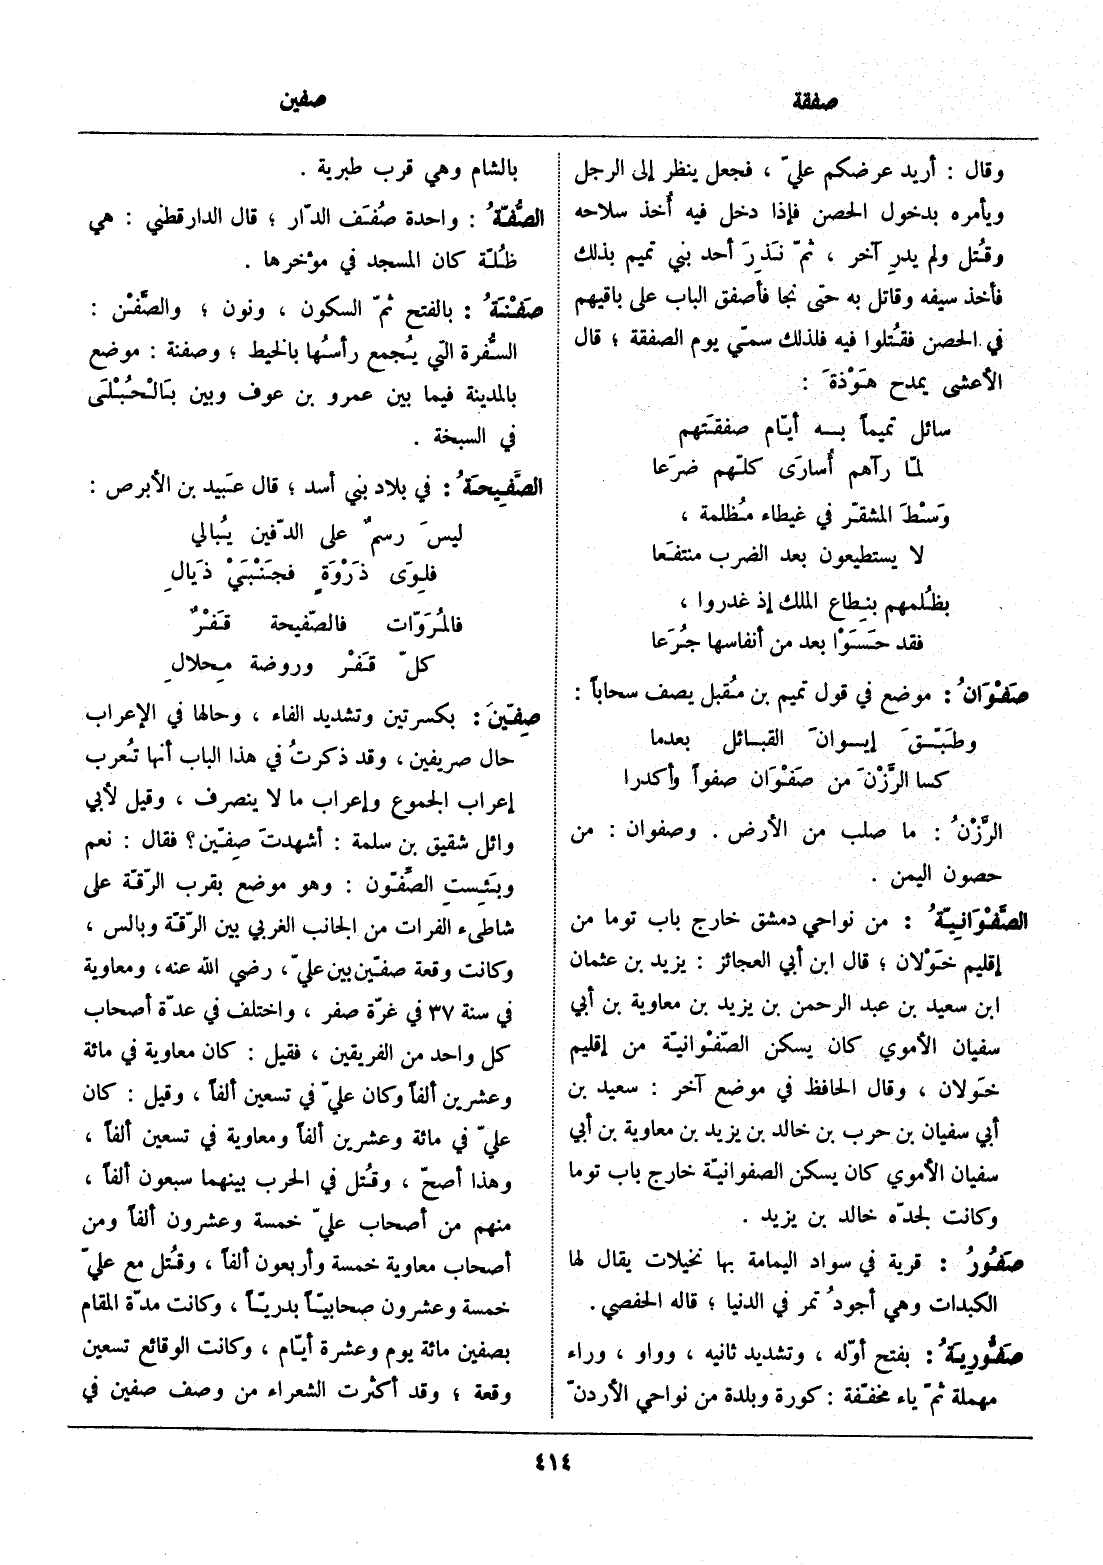 صفقة
صفين
وقال : أريد عرضكم عليّ ، فجعل ينظر إلى الرجل
ويأمره بدخول الحصن فإذا دخل فيه أُخذ سلاحه
وقُتل ولم يدرِ آخر ، ثمّ نَذِرَ أحد بني تميم بذلك
فأخذ سيفه وقاتل به حتى نجا فأصفق الباب على باقيهم
في الحصن فقُتلوا فيه فلذلك سمّي يوم الصفقة ؛ قال
الأعشى يمدح هَوْذَةَ :
سائل تميماً بـه أيّام صفقتهم
لمّا رآهم أُسارَى كلّهم ضرَعا
وَسْطَ المشقّر في غيطاء مُظلمة ،
لا يستطيعون بعد الضرب منتفَعا
بظُلمهم بنِطاع الملك إذ غدروا ،
فقد حَسَوْا بعد من أنفاسها جُرَعا
صَفْوَانُ : موضع في قول تميم بن مُقبل يصف سحاباً :
وطَبّقَ إيوانَ القبائل بعدما
كسا الرَّزْنَ من صَفْوَان صفواً وأكدرا
الرَّزْنُ : ما صلب من الأرض . وصفوان : من
حصون اليمن .
الصَّفْوَانِيّةُ : من نواحي دمشق خارج باب توما من
إقليم خَوْلان ؛ قال ابن أبي العجائز : يزيد بن عثمان
ابن سعيد بن عبد الرحمن بن يزيد بن معاوية بن أبي
سفيان الأموي كان يسكن الصّفْوانيّة من إقليم
خَولان ، وقال الحافظ في موضع آخر : سعيد بن
أبي سفيان بن حرب بن خالد بن يزيد بن معاوية بن أبي
سفيان الأموي كان يسكن الصفوانيّة خارج باب توما
وكانت لجدّه خالد بن يزيد .
صَفُورُ : قرية في سواد اليمامة بها نخيلات يقال لها
الكبدات وهي أجودُ تمر في الدنيا ؛ قاله الحفصي .
صَفُّورِيَةُ : بفتح أوّله ، وتشديد ثانيه ، وواو ، وراء
مهملة ثمّ ياء مخفّفة : كورة وبلدة من نواحي الأردنّ
بالشام وهي قرب طبرية .
الصُّفّةُ : واحدة صُفَف الدّار ؛ قال الدارقطني : هي
ظُلّة كان المسجد في مؤخرها .
صَفْنَةُ : بالفتح ثمّ السكون ، ونون ؛ والصَّفْن :
السُّفرة التي يُجمع رأسُها بالخيط ؛ وصفنة : موضع
بالمدينة فيما بين عمرو بن عوف وبين بَالْحُبْلَى
في السبخة .
الصَّفِيحَةُ : في بلاد بني أسد ؛ قال عَبيد بن الأبرص :
ليسَ رسمٌ على الدّفين يُبالي
فلِوَى ذَرْوَةٍ فجَنْبَيْ ذَيالِ
فالمُرَوّات فالصّفيحة قَفْرٌ
كلّ قَفْر وروضة مِحلالِ
صِفّينَ : بكسرتين وتشديد الفاء ، وحالها في الإعراب
حال صريفين ، وقد ذكرتُ في هذا الباب أنها تُعرب
إعراب الجموع وإعراب ما لا ينصرف ، وقيل لأبي
وائل شقيق بن سلمة : أشهدتَ صِفّين ؟ فقال : نعم
وبَئِستِ الصِّفّون : وهو موضع بقرب الرّقّة على
شاطىء الفرات من الجانب الغربي بين الرّقّة وبالس ،
وكانت وقعة صفّين بين عليّ ، رضي الله عنه ، ومعاوية
في سنة ٣٧ في غرّة صفر ، واختلف في عدّة أصحاب
كل واحد من الفريقين ، فقيل : كان معاوية في مائة
وعشرين ألفاً وكان عليّ في تسعين ألفاً ، وقيل : كان
عليّ في مائة وعشرين ألفاً ومعاوية في تسعين ألفاً ،
وهذا أصحّ ، وقُتل في الحرب بينهما سبعون ألفاً ،
منهم من أصحاب عليّ خمسة وعشرون ألفاً ومن
أصحاب معاوية خمسة وأربعون ألفاً ، وقُتل مع عليّ
خمسة وعشرون صحابيّاً بدريّاً ، وكانت مدّة المقام
بصفين مائة يوم وعشرة أيّام ، وكانت الوقائع تسعين
وقعة ؛ وقد أكثرت الشعراء من وصف صفين في
٤١٤